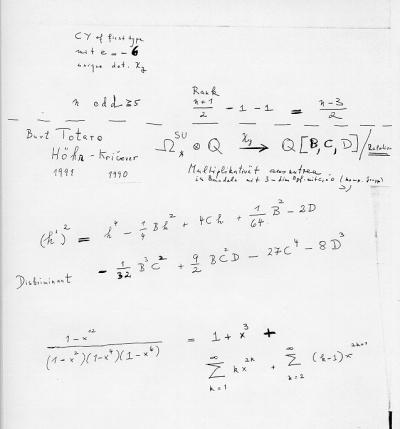 CY of first type
mit e = -6
unique det. χ_y
n odd ≥ 5
Rank
(n+1)/2 - 1 - 1 = (n-3)/2
Burt Totaro
Höhn - Kričever
1991 1990
Ω_*^SU ⊗ Q →^{χ_y} Q[B, C, D]/Relation
Multiplikativität
in Bündeln mit
(h')² = h⁴ - 1/4 Bh² + 4Ch + 1/64 B² - 2D
Discriminant - 1/32 B³C² + 9/2 BC²D - 27C⁴ - 8D³
(1-x¹²)/((1-x²)(1-x⁴)(1-x⁶)) = 1 + x³ +
∑_{k=1}^∞ kx^{2k} + ∑_{k=2}^∞ (k-1)x^{2k+1}